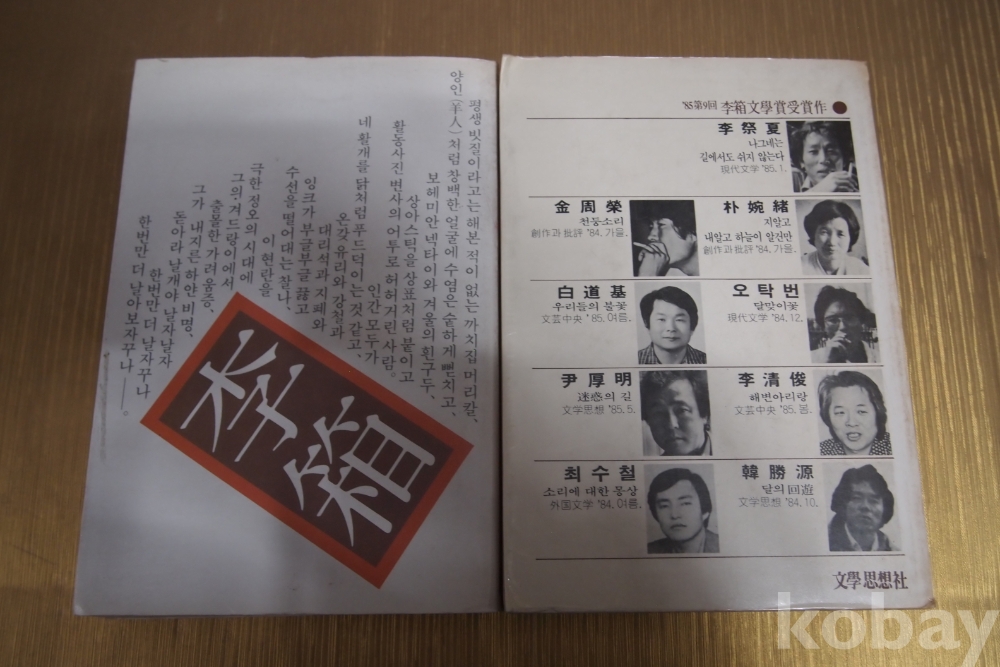 평생 빗질이라고는 해본 적이 없는 까치집 머리칼,
양인(羊人)처럼 창백한 얼굴에 수염은 숱하게 뻗치고,
보헤미안 넥타이와 겨울의 흰 구두,
상아 스틱을 상표처럼 붙이고
활동사진 변사의 어투로 허허거린 사람.
인간 모두가
네 활개를 닭처럼 푸드덕이는 것 같고,
온갖 유리와 강철과
대리석과 지폐와
잉크가 부글부글 끓고
수선을 떨어대는 찰나,
이 현란을
극한 정오의 시대에
그의 겨드랑이에서
출몰한 가려움증,
그가 내지른 하얀 비명,
돋아라 날개야 날자 날자
한번만 더 날자꾸나
한번만 더 날아 보자꾸나 ──。
李箱
'85 第9回 李箱文學賞受賞作 ●
李祭夏
나그네는
길에서도 쉬지 않는다
現代文学 '85. 1.
金周榮
천둥소리
創作과批評 '84. 가을.
朴婉緖
저알고
내알고 하늘이 알건만
創作과批評 '84. 가을.
白道基
우리들의 불꽃
文芸中央 '85. 여름.
오탁번
달맞이꽃
現代文学 '84. 12.
尹厚明
迷惑의 길
文学思想 '85. 5.
李清俊
해변아리랑
文芸中央 '85. 봄.
최수철
소리에 대한 몽상
外国文学 '84. 여름.
韓勝源
달의 回遊
文学思想 '84. 10.
文學思想社
kobay